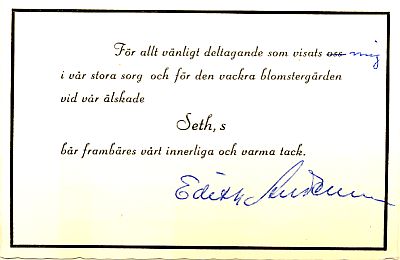 För allt vänligt deltagande som visats oss mig
i vår stora sorg och för den vackra blomstergärden
vid vår älskade
Seth,s
bår frambäres vårt innerliga och varma tack.
Edith